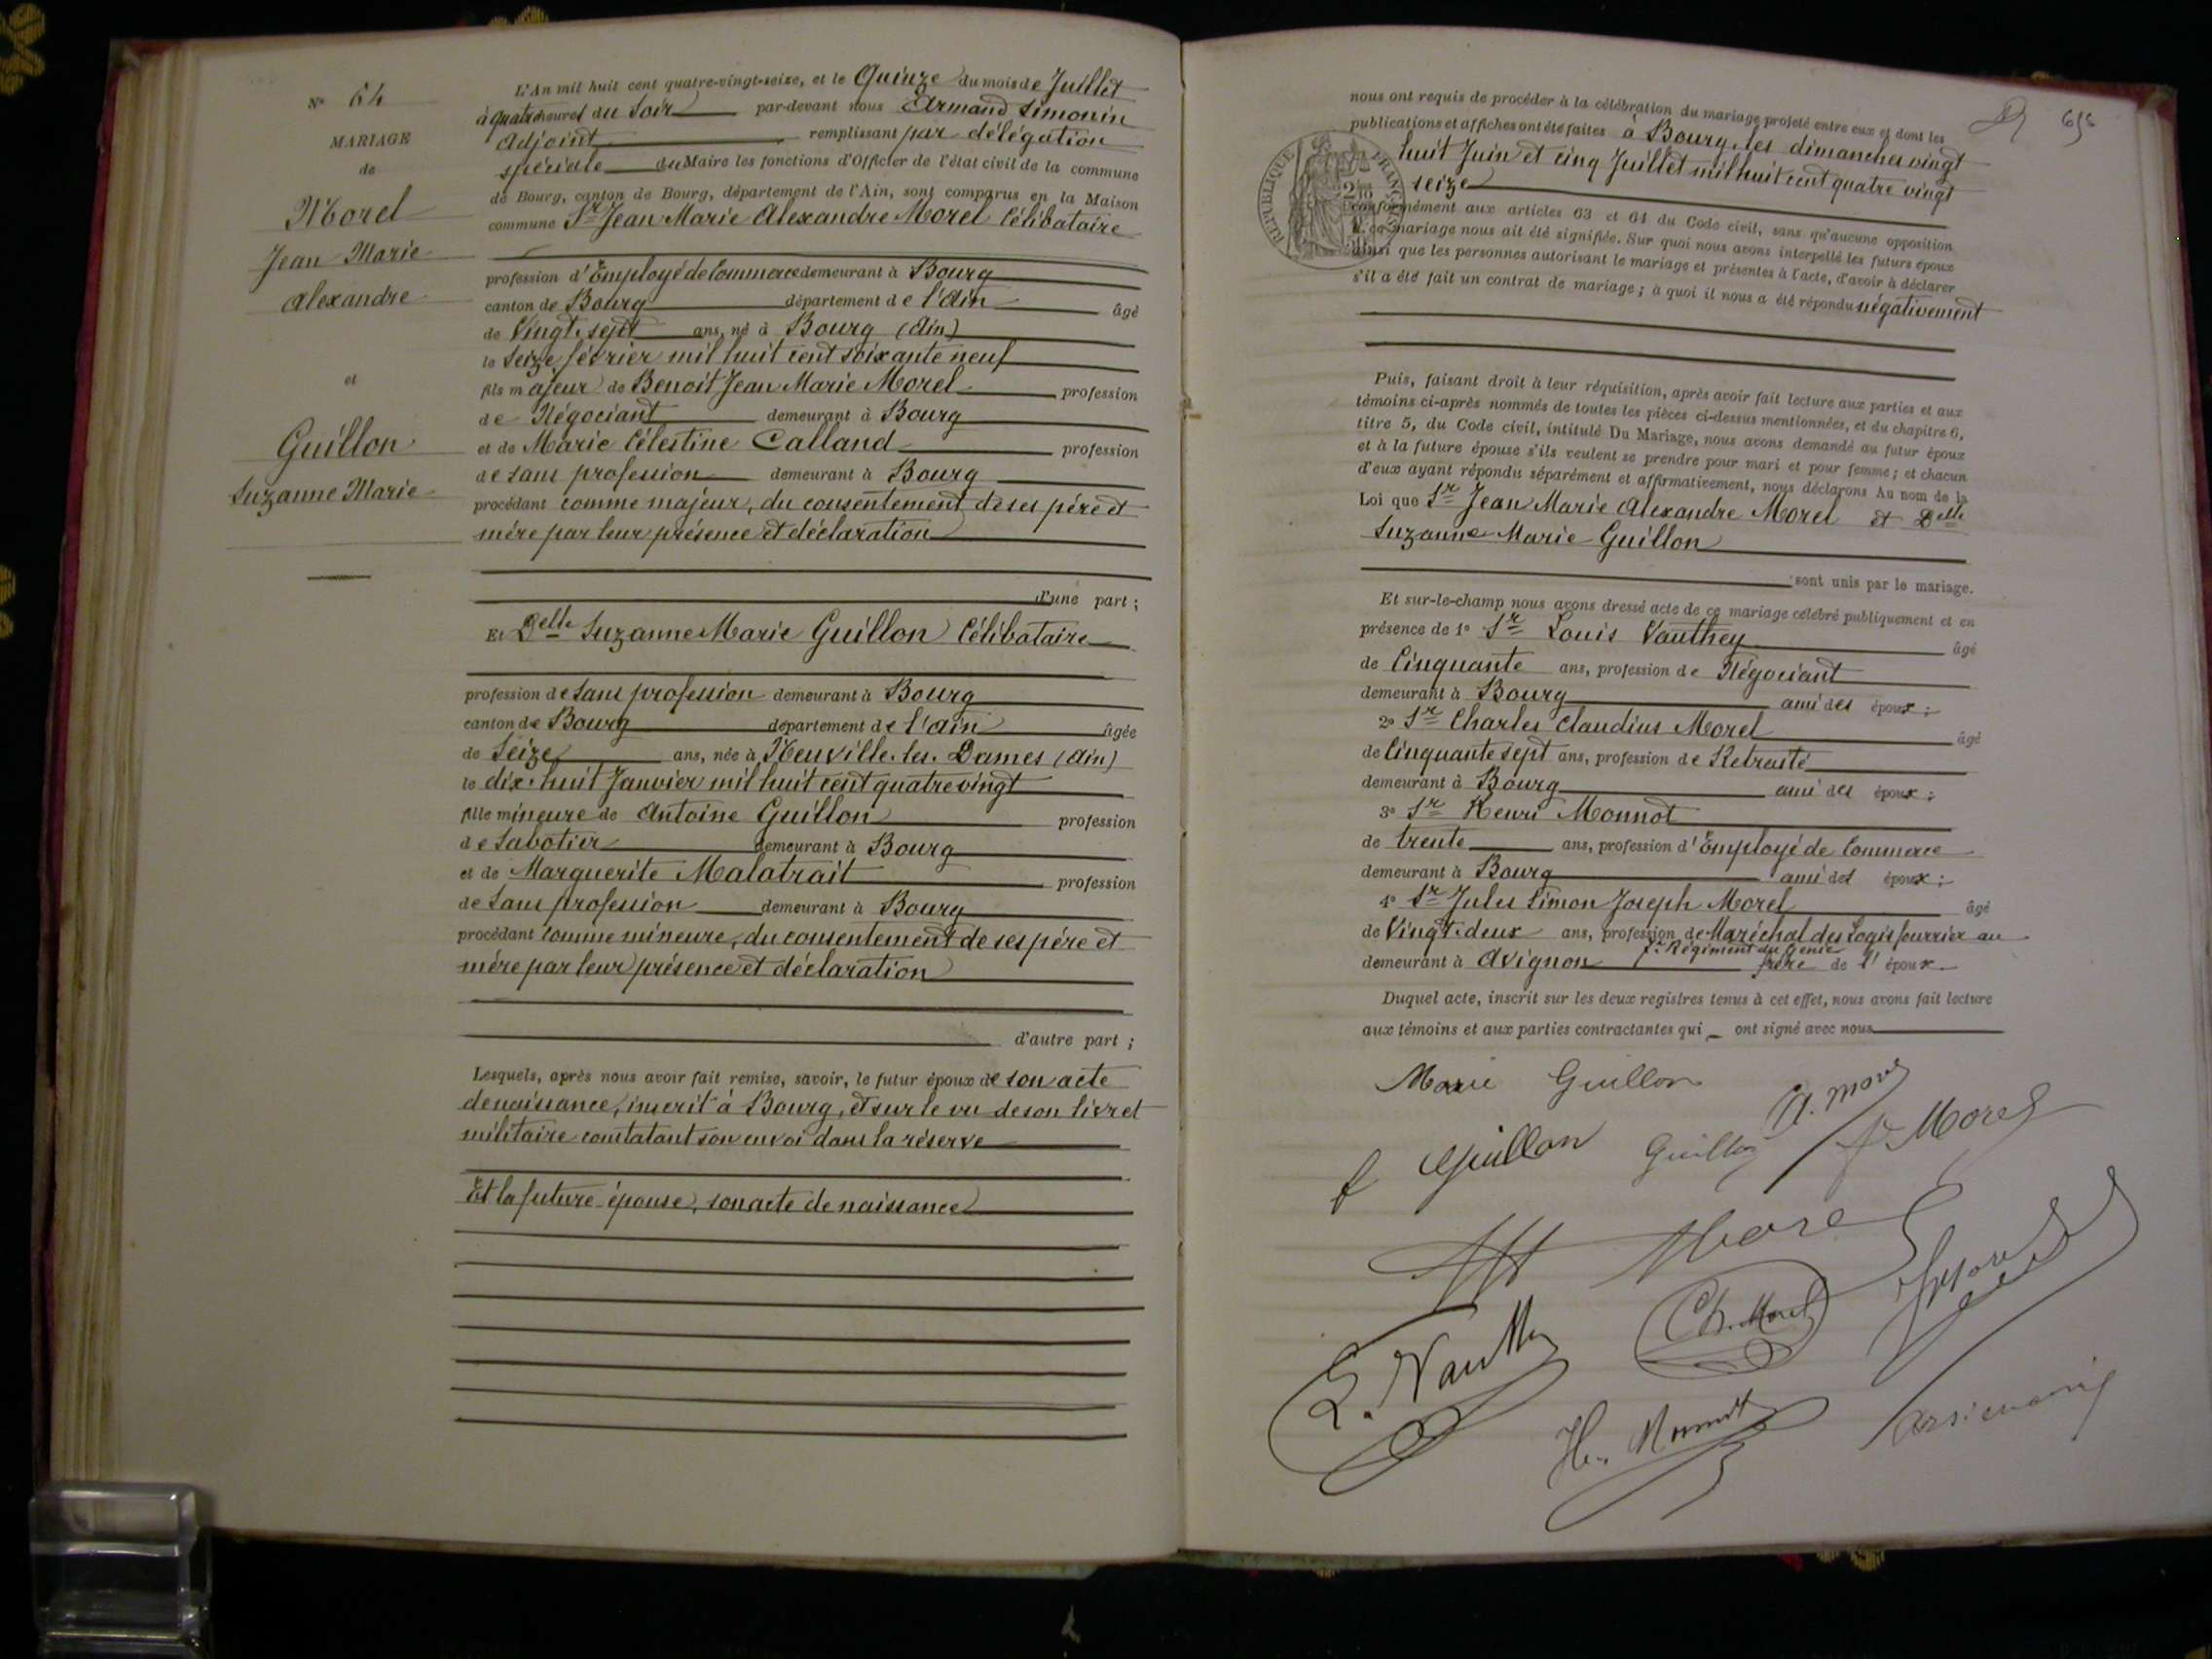 N° 64
MARIAGE
de
Morel
Jean Marie
Alexandre
et
Guillon
Suzanne Marie
L'An mil huit cent quatre-vingt-seize, et le Quinze du mois de Juillet
à quatre heures du soir par-devant nous Armand Simonin
Adjoint remplissant par délégation
spéciale du Maire les fonctions d'Officier de l'état civil de la commune
de Bourg, canton de Bourg, département de l'Ain, sont comparus en la Maison
commune Sr Jean Marie Alexandre Morel Célibataire
profession d'Employé de Commerce demeurant à Bourg
canton de Bourg département de l'Ain âgé
de Vingt-sept ans, né à Bourg (Ain)
le seize février mil huit cent soixante neuf
fils majeur de Benoit Jean Marie Morel profession
de Négociant demeurant à Bourg
et de Marie Célestine Calland profession
de sans profession demeurant à Bourg
procédant comme majeur, du consentement de ses père et
mère par leur présence et déclaration
d'une part ;
Et Delle Suzanne Marie Guillon Célibataire
profession de sans profession demeurant à Bourg
canton de Bourg département de l'Ain âgée
de Seize ans, née à Neuville-les-Dames (Ain)
le dix-huit Janvier mil huit cent quatre vingt
fille mineure de Antoine Guillon profession
de Sabotier demeurant à Bourg
et de Marguerite Malatrait profession
de sans profession demeurant à Bourg
procédant comme mineure, du consentement de ses père et
mère par leur présence et déclaration
d'autre part ;
Lesquels, après nous avoir fait remise, savoir, le futur époux de son acte
de naissance, inscrit à Bourg, et sur le vu de son livret
militaire constatant son envoi dans la réserve
Et la future épouse, son acte de naissance
nous ont requis de procéder à la célébration du mariage projeté entre eux et dont les
publications et affiches ont été faites à Bourg, les dimanches vingt
huit Juin et cinq Juillet mil huit cent quatre vingt
seize
RÉPUBLIQUE FRANÇAISE
conformément aux articles 63 et 64 du Code civil, sans qu'aucune opposition
à ce mariage nous ait été signifiée. Sur quoi nous avons interpellé les futurs époux
ainsi que les personnes autorisant le mariage et présentes à l'acte, d'avoir à déclarer
s'il a été fait un contrat de mariage ; à quoi il nous a été répondu négativement
Puis, faisant droit à leur réquisition, après avoir fait lecture aux parties et aux
témoins ci-après nommés de toutes les pièces ci-dessus mentionnées, et du chapitre 6,
titre 5, du Code civil, intitulé Du Mariage, nous avons demandé au futur époux
et à la future épouse s'ils veulent se prendre pour mari et pour femme ; et chacun
d'eux ayant répondu séparément et affirmativement, nous déclarons Au nom de la
Loi que Sr Jean Marie Alexandre Morel et Delle
Suzanne Marie Guillon
sont unis par le mariage.
Et sur-le-champ nous avons dressé acte de ce mariage célébré publiquement et en
présence de 1° Sr Louis Vauthey âgé
de Cinquante ans, profession de Négociant
demeurant à Bourg ami des époux ;
2° Sr Charles Claudius Morel âgé
de Cinquante sept ans, profession de Retraité
demeurant à Bourg ami des époux ;
3° Sr Henri Monnot
de trente ans, profession d'Employé de Commerce
demeurant à Bourg ami des époux ;
4° Sr Jules Simon Joseph Morel âgé
de Vingt-deux ans, profession de Maréchal des Logis fourrier au
7e Régiment du Génie
demeurant à Avignon frère de l'époux
Duquel acte, inscrit sur les deux registres tenus à cet effet, nous avons fait lecture
aux témoins et aux parties contractantes qui ont signé avec nous
Marie Guillon
A. Morel
Guillon
Guillon
Morel
Morel
Ch. Morel
L. Vauthey
H. Monnot